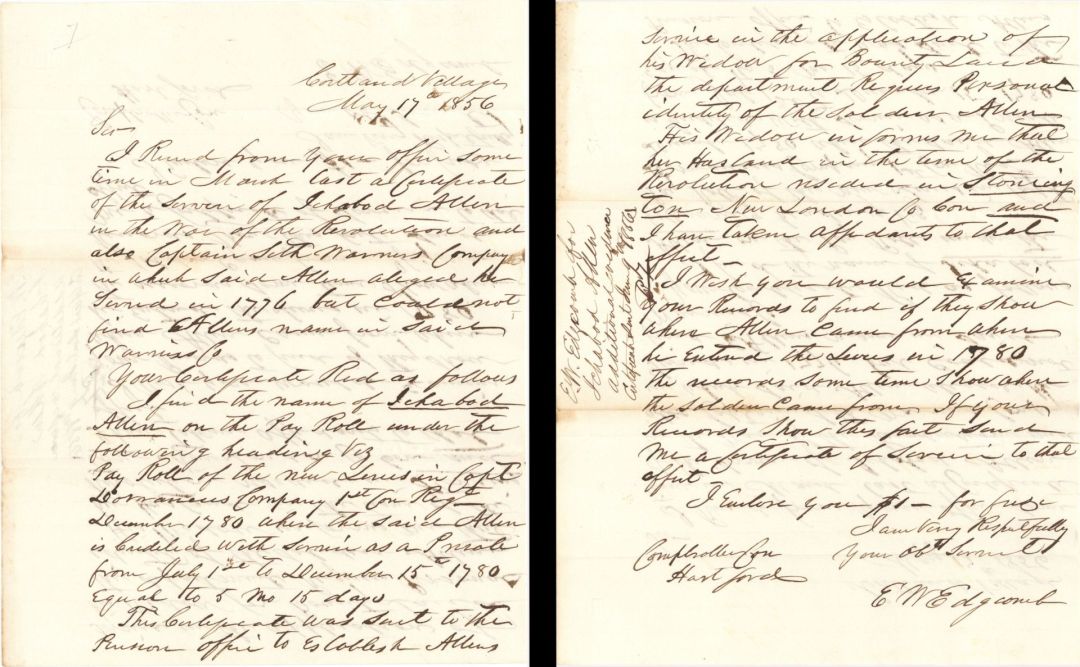 Cortland Village
May 17th 1856
Sir
I Recud from your offic Some
time in March last a Certificate
of the Servic of Ichabod Allen
in the War of the Revolution and
also Captain Seth Warners Company
in which Said Allen aleged he
Served in 1776 but could not
find Allens name in Said
Warners Co
Your Certificate Red as follows
I find the name of Ichabod
Allen on the Pay Roll under the
following heading Viz
Pay Roll of the new Levies in Capt
Dorrances Company 1st Con Regt
December 1780 where the said Allen
is Credeted with Servic as a Private
from July 1st to December 15th 1780
Equal to 5 Mo 15 days
This Certificate was Sent to the
Pension offic to Establish Allens
Service in the application of
his Widow for Bounty Land
the department Requires Personal
identity of the Soldier Allen
His Widow informes me that
her Husband in the time of the
Revolution resided in Stoning
ton New London Co Con and
I have taken affidavits to that
effect
I Wish you would Examine
your Records to find if they Show
where Allen Came from when
he Enterd the Levies in 1780
the records Some time Show where
the Soldier Came from If your
Records Show this fact Send
me a Certificate of Servic to that
effect
I Enclose you $1 – for
I am Very Respectfully
Your Obt Servent
E W Edgcomb
Comptroller Con
Hartford
E.W. Edgcomb for
Ichabod Allen
additional evidence
Certificate sent